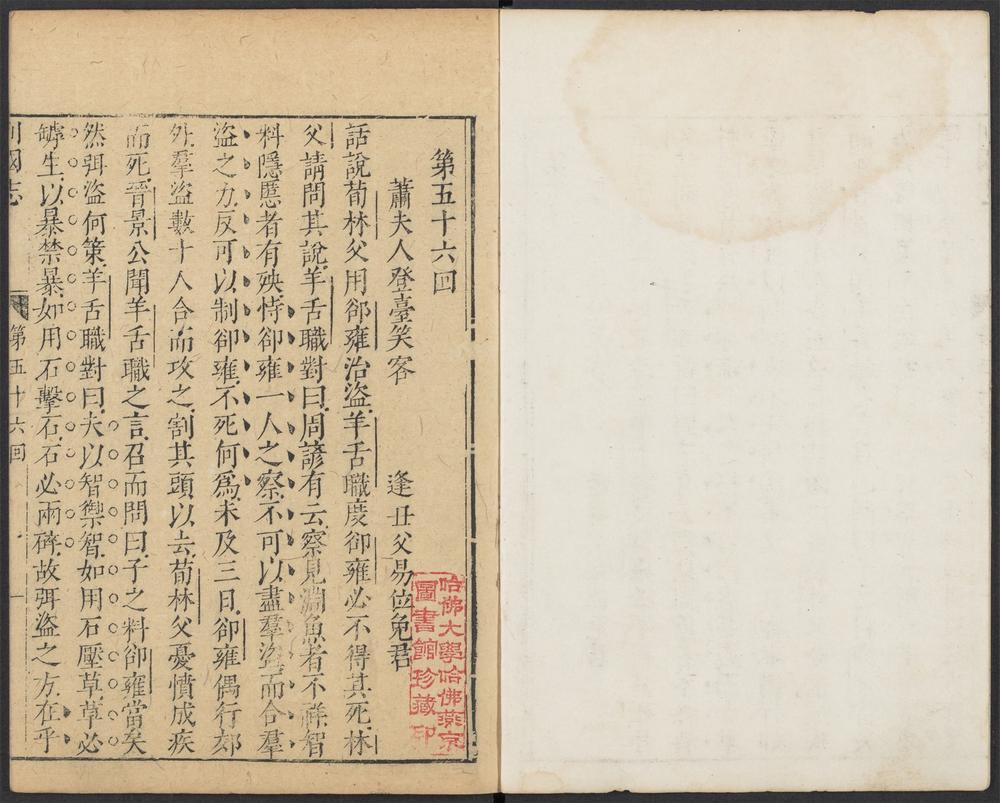 第五十六回
蕭夫人登臺笑客　逢丑父易位免君
話說荀林父用郤雍治盜羊舌職度郤雍必不得其死林
父請問其說羊舌職對曰周諺有云察見淵魚者不祥智
料隱慝者有殃恃郤雍一人之察不可以盡羣盜而合羣
盜之力反可以制郤雍不死何爲未及三日郤雍偶行郊
外羣盜數十人合而攻之割其頭以去荀林父憂憤成疾
而死晉景公聞羊舌職之言召而問曰子之料郤雍當矣
然弭盜何策羊舌職對曰夫以智禦智如用石壓草草必
罅生以暴禁暴如用石擊石石必兩碎故弭盜之方在乎
列國志　第五十六回　一
哈佛大學哈佛燕京
圖書館珍藏印